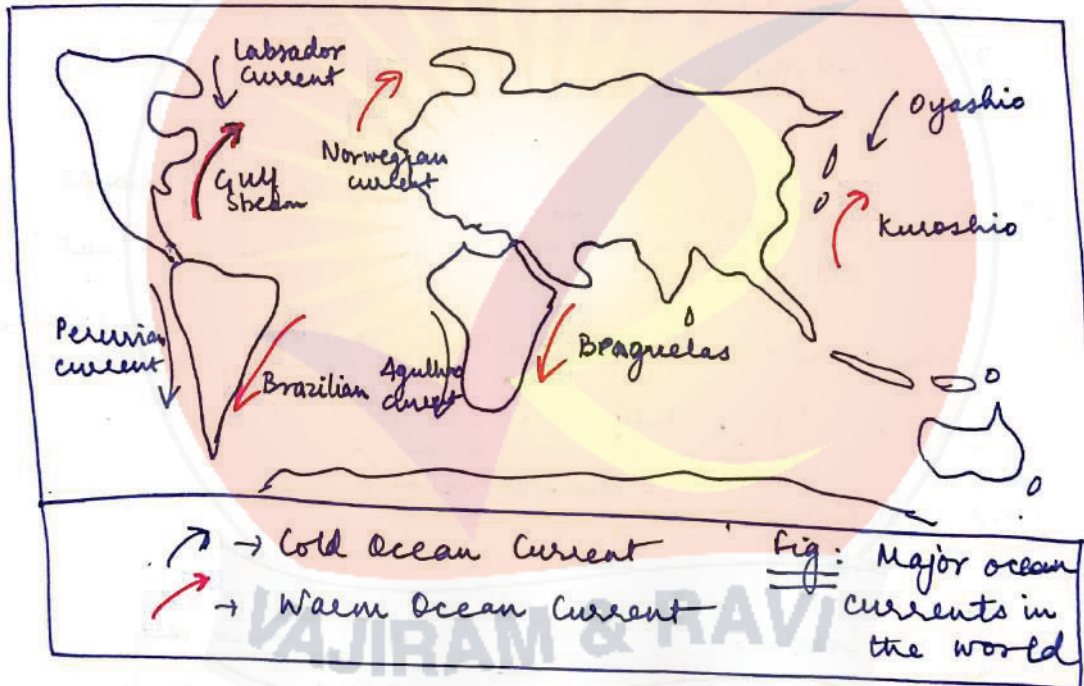 Labrador
Current
Oyashio
Norwegian
current
Gulf
Stream
Kuroshio
Peruvian
current
Brazilian
Agulhas
current
Benguelas
→ Cold Ocean Current
→ Warm Ocean Current
Fig: Major ocean
currents in
the world
VAJIRAM & RAVI